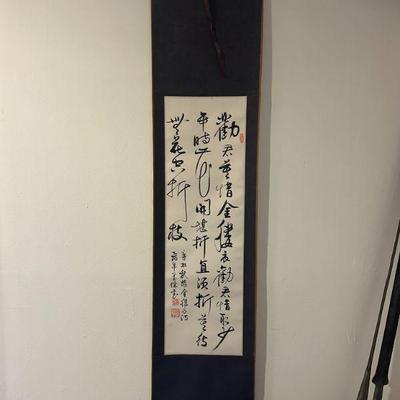 勸君莫惜金縷衣勸君惜取少
年時花開堪折直須折莫待
無花空折枝
杜秋娘金縷衣詩